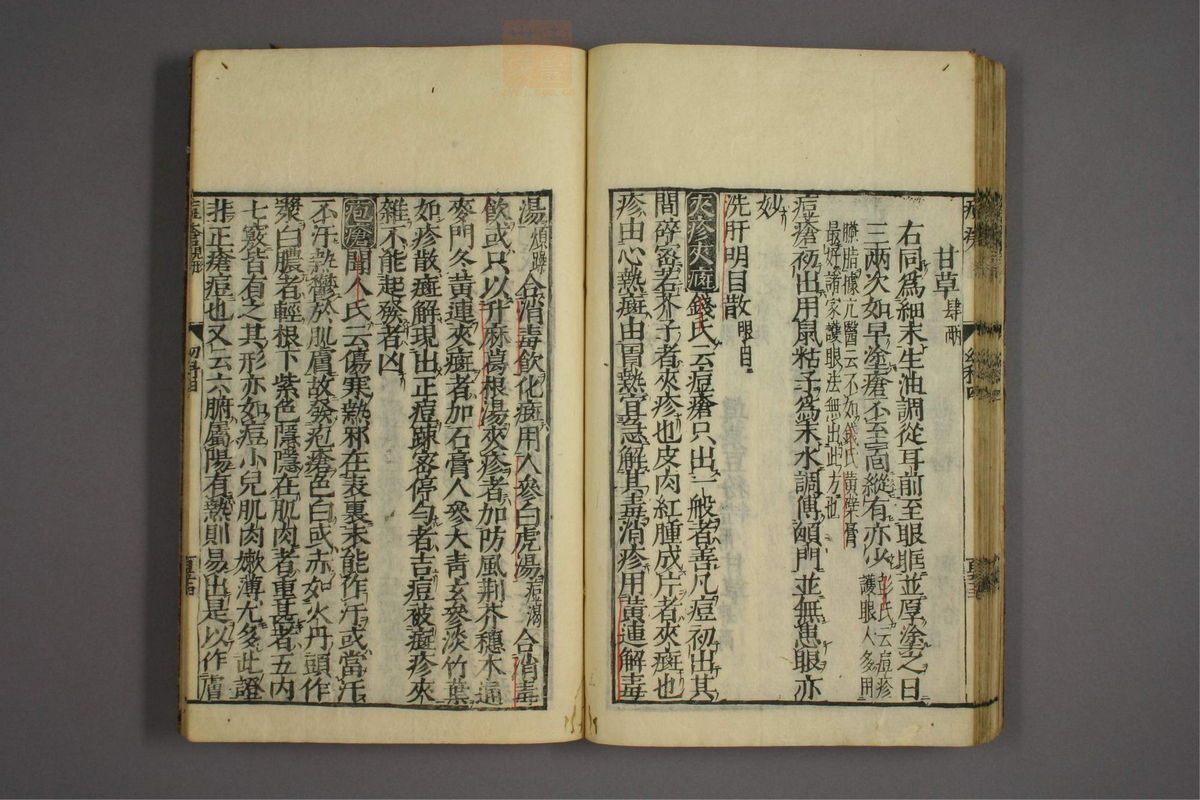 甘草肆兩
右同爲細末生油調從耳前至眼眶並厚塗之日
三兩次如早塗瘡不至面縱有亦少彭氏云痘疹護眼人多用
臙脂據亢醫云不如錢氏黃蘗膏
最好諸家護眼法無出此方也
痘瘡初出用鼠粘子爲末水調傅顖門並無患眼亦
妙
洗肝明目散眼目
夾疹夾癍錢氏云痘瘡只出一般者善凡痘初出其
間碎密若芥子者夾疹也皮肉紅腫成片者夾癍也
疹由心熱癍由胃熱宜急解其毒消疹用黃連解毒
湯煩躁合消毒飲化癍用人參白虎湯痘渴合消毒
飲或只以升麻葛根湯夾疹者加防風荆芥穗木通
麥門冬黃連夾癍者加石膏人參大青玄參淡竹葉
如疹散癍解現出正痘疎密停勻者吉痘被癍疹夾
雜不能起發者凶
疱瘡聞人氏云傷寒熱邪在表裏未能作汗或當汗
不汗熱鬱於肌膚故發疱瘡色白或赤如火丹頭作
漿白膿者輕根下紫色隱隱在肌肉者重甚者五內
七竅皆有之其形亦如痘小兒肌肉嫩薄尤多此證
非正瘡痘也又云六腑屬陽有熱則易出是以作膚